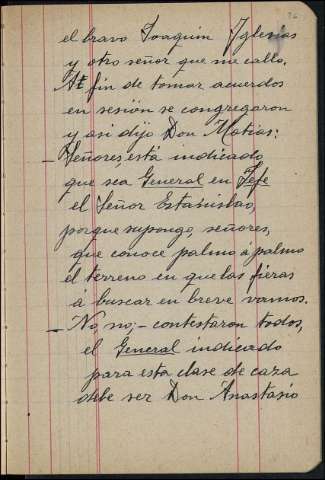 el bravo Joaquin Yglesias
y otro señor que me callo.
Al fin de tomar acuerdos
en sesión se congregaron
y asi dijo Don Matías:
— Señores, está indicado
que sea General en Jefe
el Señor Estanislao,
porque supongo, señores,
que conoce palmo á palmo
el terreno en que las fieras
á buscar en breve vamos.
— No, no; – contestaron todos,
el General indicado
para esta clase de caza
debe ser Don Anastasio